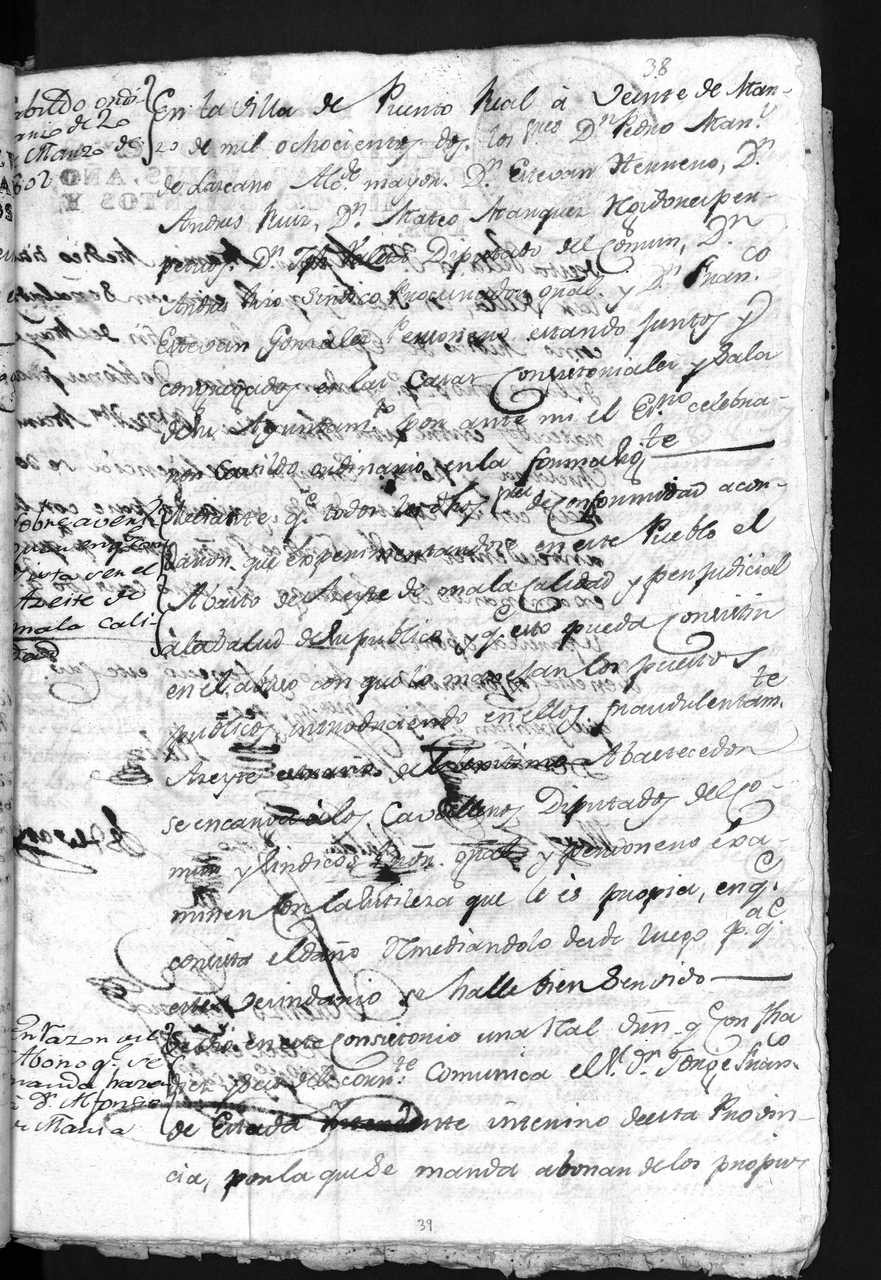 38
Cabildo ordi-
nario de 20
de Marzo de
1802
En la villa de Puerto Real à veinte de Mar-
zo de mil ochocientos dos. los Sres Dn Pedro Manl
de Lazcano Alde mayor. Dn Estevan Herrero, Dn
Andres Ruiz, Dn Mateo Marquez Rejidores per-
petuos. Dn Diputado del Comun, Dn
Andres Rizo Sindico Procurador gral. y Dn Franco
Estevan Gonzalez Personero estando juntos y
congregados en las Casas Consistoriales y Sala
de su Ayuntamto por ante mi el Esno celebra-
ron Cavildo ordinario en la forma sigte
Sobre averi-
guar en q. con-
sista ser el
Azeite de
mala cali-
dad
Mediante qe todos los dhos Sres de conformidad acor-
daron. que experimentandose en este Pueblo el
Abasto de Azeyte de mala Calidad y perjudicial
à la salud del publico, y qe esto pueda Consistir
en el abuso con que lo manejan los puestos
publicos introduciendo en ellos fraudulentamte
Azeyte de Abastecedor
se encarga à los Cavalleros Diputados del Co-
mun y Sindicos Prôr. gral y personero exa-
minen con la sutileza que le es propia, en q.
consista el daño Remediandolo desde luego pa q.
este Vecindario se halle bien Servido
En razon del
Abono q. se
manda hazer
à Dn Alfonso
de Maria
Se vio en este Consistorio una Rl. Orñ. qe con fha
diez y seis del corrte Comunica el Sr. Dn Jorge Franco
de Estada Intendente interino de esta Provin-
cia, por la que se manda abonar de los propios
39